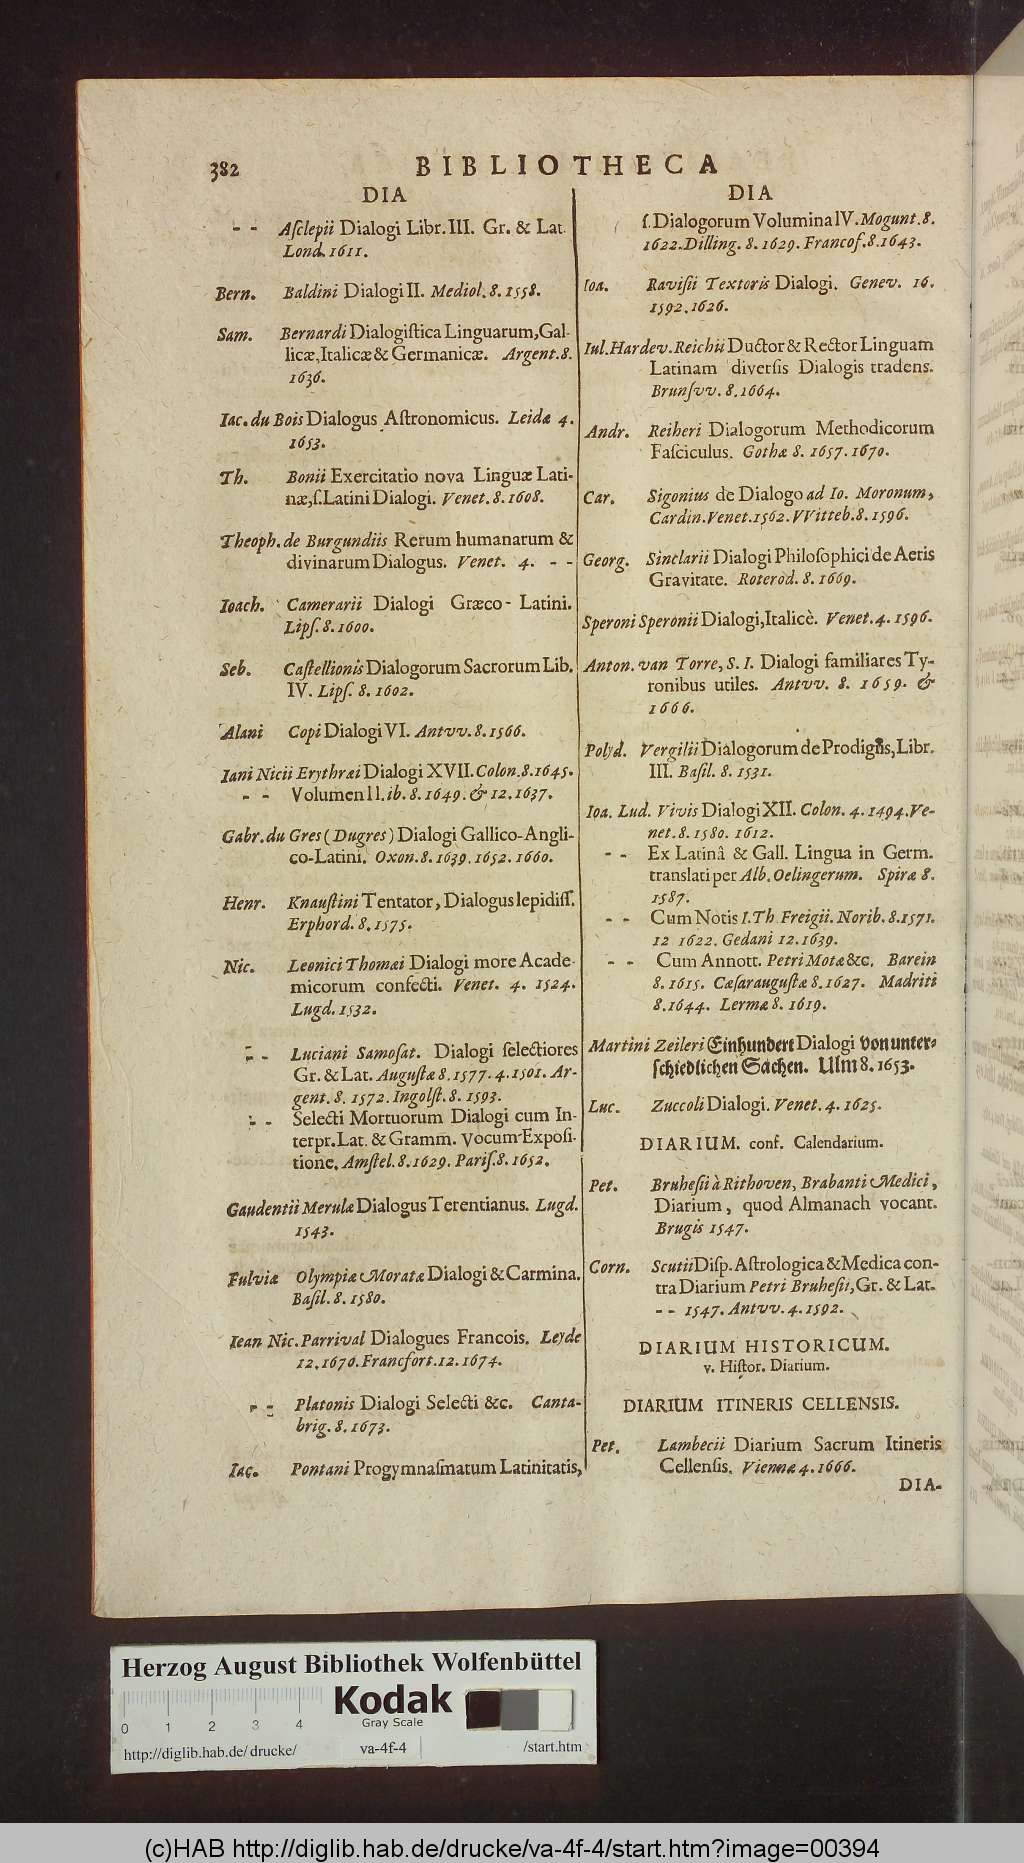 382 BIBLIOTHECA
DIA
- - Aſclepii Dialogi Libr. III. Gr. & Lat.
Lond. 1611.
Bern. Baldini Dialogi II. Mediol. 8. 1558.
Sam. Bernardi Dialogiſtica Linguarum, Gal-
licæ, Italicæ & Germanicæ. Argent. 8.
1636.
Iac. du Bois Dialogus Aſtronomicus. Leidæ 4.
1653.
Th. Bonii Exercitatio nova Linguæ Lati-
næ, ſ. Latini Dialogi. Venet. 8. 1608.
Theoph. de Burgundiis Rerum humanarum &
divinarum Dialogus. Venet. 4. - -
Ioach. Camerarii Dialogi Græco-Latini.
Lipſ. 8. 1600.
Seb. Caſtellionis Dialogorum Sacrorum Lib.
IV. Lipſ. 8. 1602.
Alani Copi Dialogi VI. Antvv. 8. 1566.
Iani Nicii Erythræi Dialogi XVII. Colon. 8. 1645.
- - Volumen II. ib. 8. 1649. & 12. 1637.
Gabr. du Gres (Dugres) Dialogi Gallico-Angli-
co-Latini. Oxon. 8. 1639. 1652. 1660.
Henr. Knauſtini Tentator, Dialogus lepidiſſ.
Erphord. 8. 1575.
Nic. Leonici Thomæi Dialogi more Acade-
micorum confecti. Venet. 4. 1524.
Lugd. 1532.
- - Luciani Samoſat. Dialogi ſelectiores
Gr. & Lat. Auguſtæ 8. 1577. 4. 1501. Ar-
gent. 8. 1572. Ingolſt. 8. 1593.
- - Selecti Mortuorum Dialogi cum In-
terpr. Lat. & Gramm. Vocum Expoſi-
tione. Amſtel. 8. 1629. Pariſ. 8. 1652.
Gaudentii Merulæ Dialogus Terentianus. Lugd.
1543.
Fulviæ Olympiæ Moratæ Dialogi & Carmina.
Baſil. 8. 1580.
Iean Nic. Parrival Dialogues Francois. Leyde
12. 1670. Francfort. 12. 1674.
- - Platonis Dialogi Selecti &c. Canta-
brig. 8. 1673.
Iac. Pontani Progymnaſmatum Latinitatis,
DIA
ſ. Dialogorum Volumina IV. Mogunt. 8.
1622. Dilling. 8. 1629. Francof. 8. 1643.
Ioa. Raviſii Textoris Dialogi. Genev. 16.
1592. 1626.
Iul. Hardev. Reichii Ductor & Rector Linguam
Latinam diverſis Dialogis tradens.
Brunſvv. 8. 1664.
Andr. Reiheri Dialogorum Methodicorum
Faſciculus. Gothæ 8. 1657. 1670.
Car. Sigonius de Dialogo ad Io. Moronum,
Cardin. Venet. 1562. VVitteb. 8. 1596.
Georg. Sinclarii Dialogi Philoſophici de Aeris
Gravitate. Roterod. 8. 1669.
Speroni Speronii Dialogi, Italicè. Venet. 4. 1596.
Anton. van Torre, S. I. Dialogi familiares Ty-
ronibus utiles. Antvv. 8. 1659. &
1666.
Polyd. Vergilii Dialogorum de Prodigiis, Libr.
III. Baſil. 8. 1531.
Ioa. Lud. Vivis Dialogi XII. Colon. 4. 1494. Ve-
net. 8. 1580. 1612.
- - Ex Latinâ & Gall. Lingua in Germ.
translati per Alb. Oelingerum. Spiræ 8.
1587.
- - Cum Notis I. Th Freigii. Norib. 8. 1571.
12 1622. Gedani 12. 1639.
- - Cum Annott. Petri Motæ &c. Barein
8. 1615. Cæſarauguſtæ 8. 1627. Madriti
8. 1644. Lermæ 8. 1619.
Martini Zeileri Einhundert Dialogi von unter-
ſchiedlichen Sachen. Ulm 8. 1653.
Luc. Zuccoli Dialogi. Venet. 4. 1625.
DIARIUM. conf. Calendarium.
Pet. Bruheſii à Rithoven, Brabanti Medici,
Diarium, quod Almanach vocant.
Brugis 1547.
Corn. Scutii Diſp. Aſtrologica & Medica con-
tra Diarium Petri Bruheſii, Gr. & Lat.
- - 1547. Antvv. 4. 1592.
DIARIUM HISTORICUM.
v. Hiſtor. Diarium.
DIARIUM ITINERIS CELLENSIS.
Pet. Lambecii Diarium Sacrum Itineris
Cellenſis. Viennæ 4. 1666.
DIA-
Herzog August Bibliothek Wolfenbüttel
Kodak
Gray Scale
0 1 2 3 4
http://diglib.hab.de/drucke/ va-4f-4 /start.htm
(c)HAB http://diglib.hab.de/drucke/va-4f-4/start.htm?image=00394